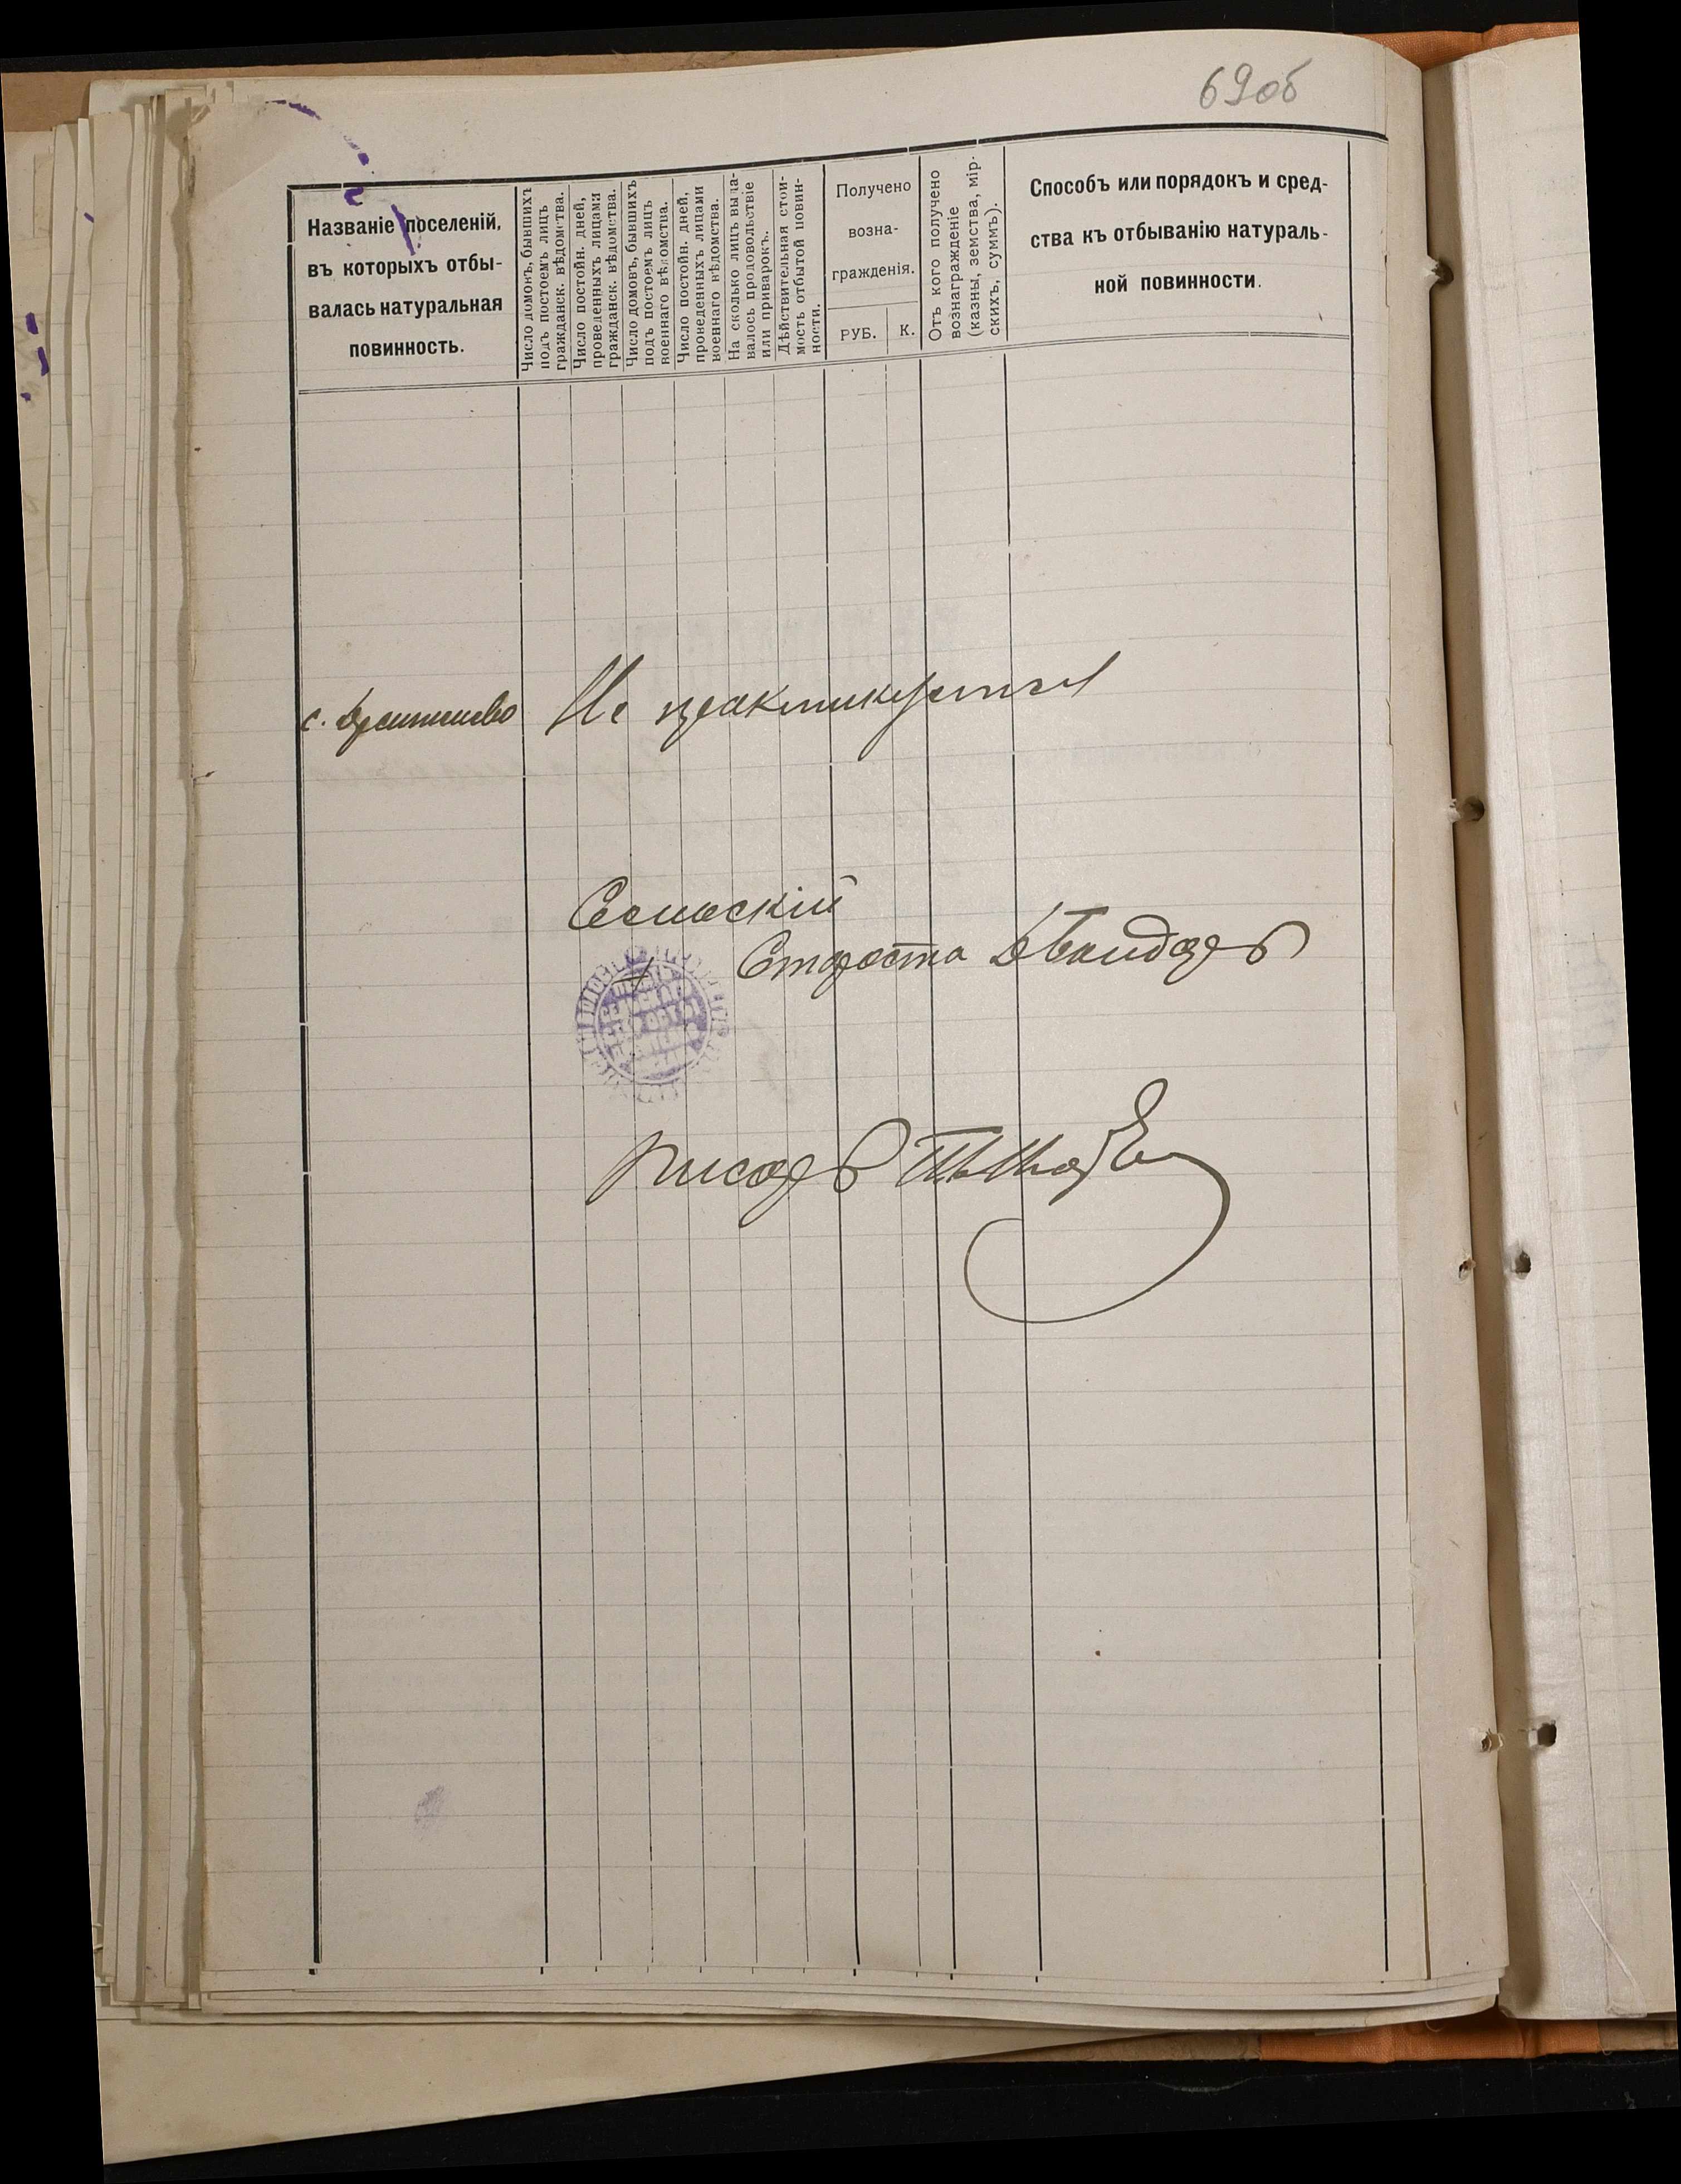 69об
Названіе поселеній,
въ которыхъ отбы-
валась натуральная
повинность.
Число домовъ, бывшихъ
подъ постоемъ лицъ
гражданск. вѣдомства.
Число постойн. дней,
проведенныхъ лицами
гражданск. вѣдомства.
Число домовъ, бывшихъ
подъ постоемъ лицъ
военнаго вѣдомства.
Число постойн. дней,
проведенныхъ лицами
военнаго вѣдомства.
На сколько лицъ выда-
валось продовольствіе
или приварокъ.
Дѣйствительная стои-
мость отбытой повин-
ности.
Получено
возна-
гражденія.
РУБ.
К.
Отъ кого получено
вознагражденіе
(казны, земства, мір-
скихъ, суммъ).
Способъ или порядокъ и сред-
ства къ отбыванію натураль-
ной повинности.
с. Не практикуется
Сельскій
Староста
Писарь